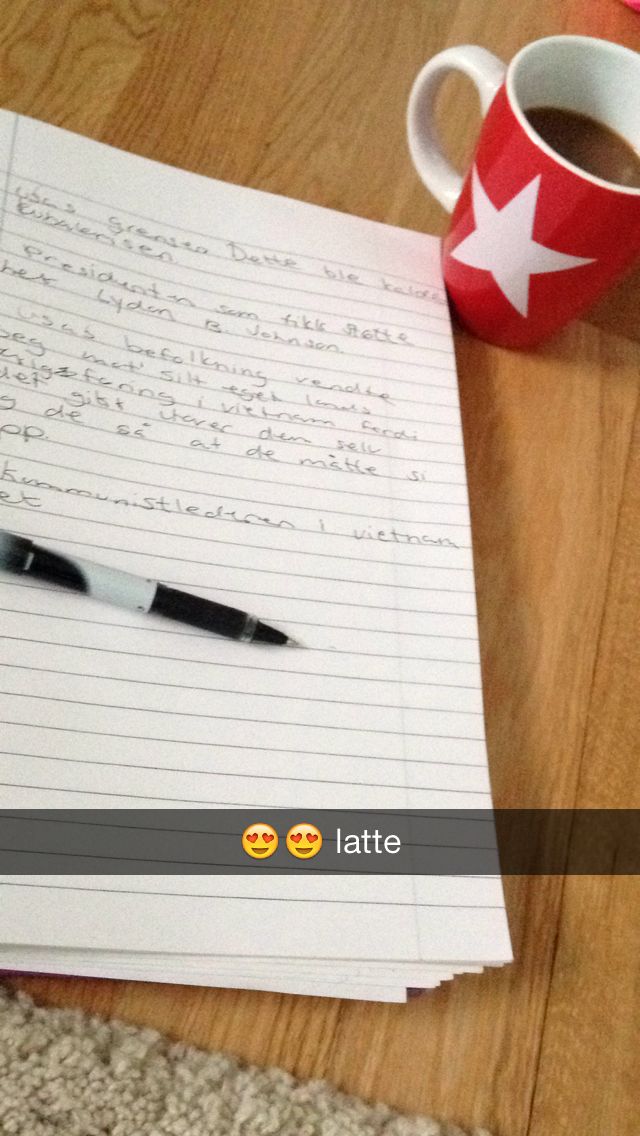 usas grensen. Dette ble kalde
Kubakrisen.
presidenten som fikk støtte
het Lydon B. Johnson.
usas befolkning vendte
seg mot sitt eget lands
krigsføring i vietnam fordi
det gikk utover dem selv
g de så at de måtte si
opp.
kummunistlederen i vietnam
et
😍😍 latte